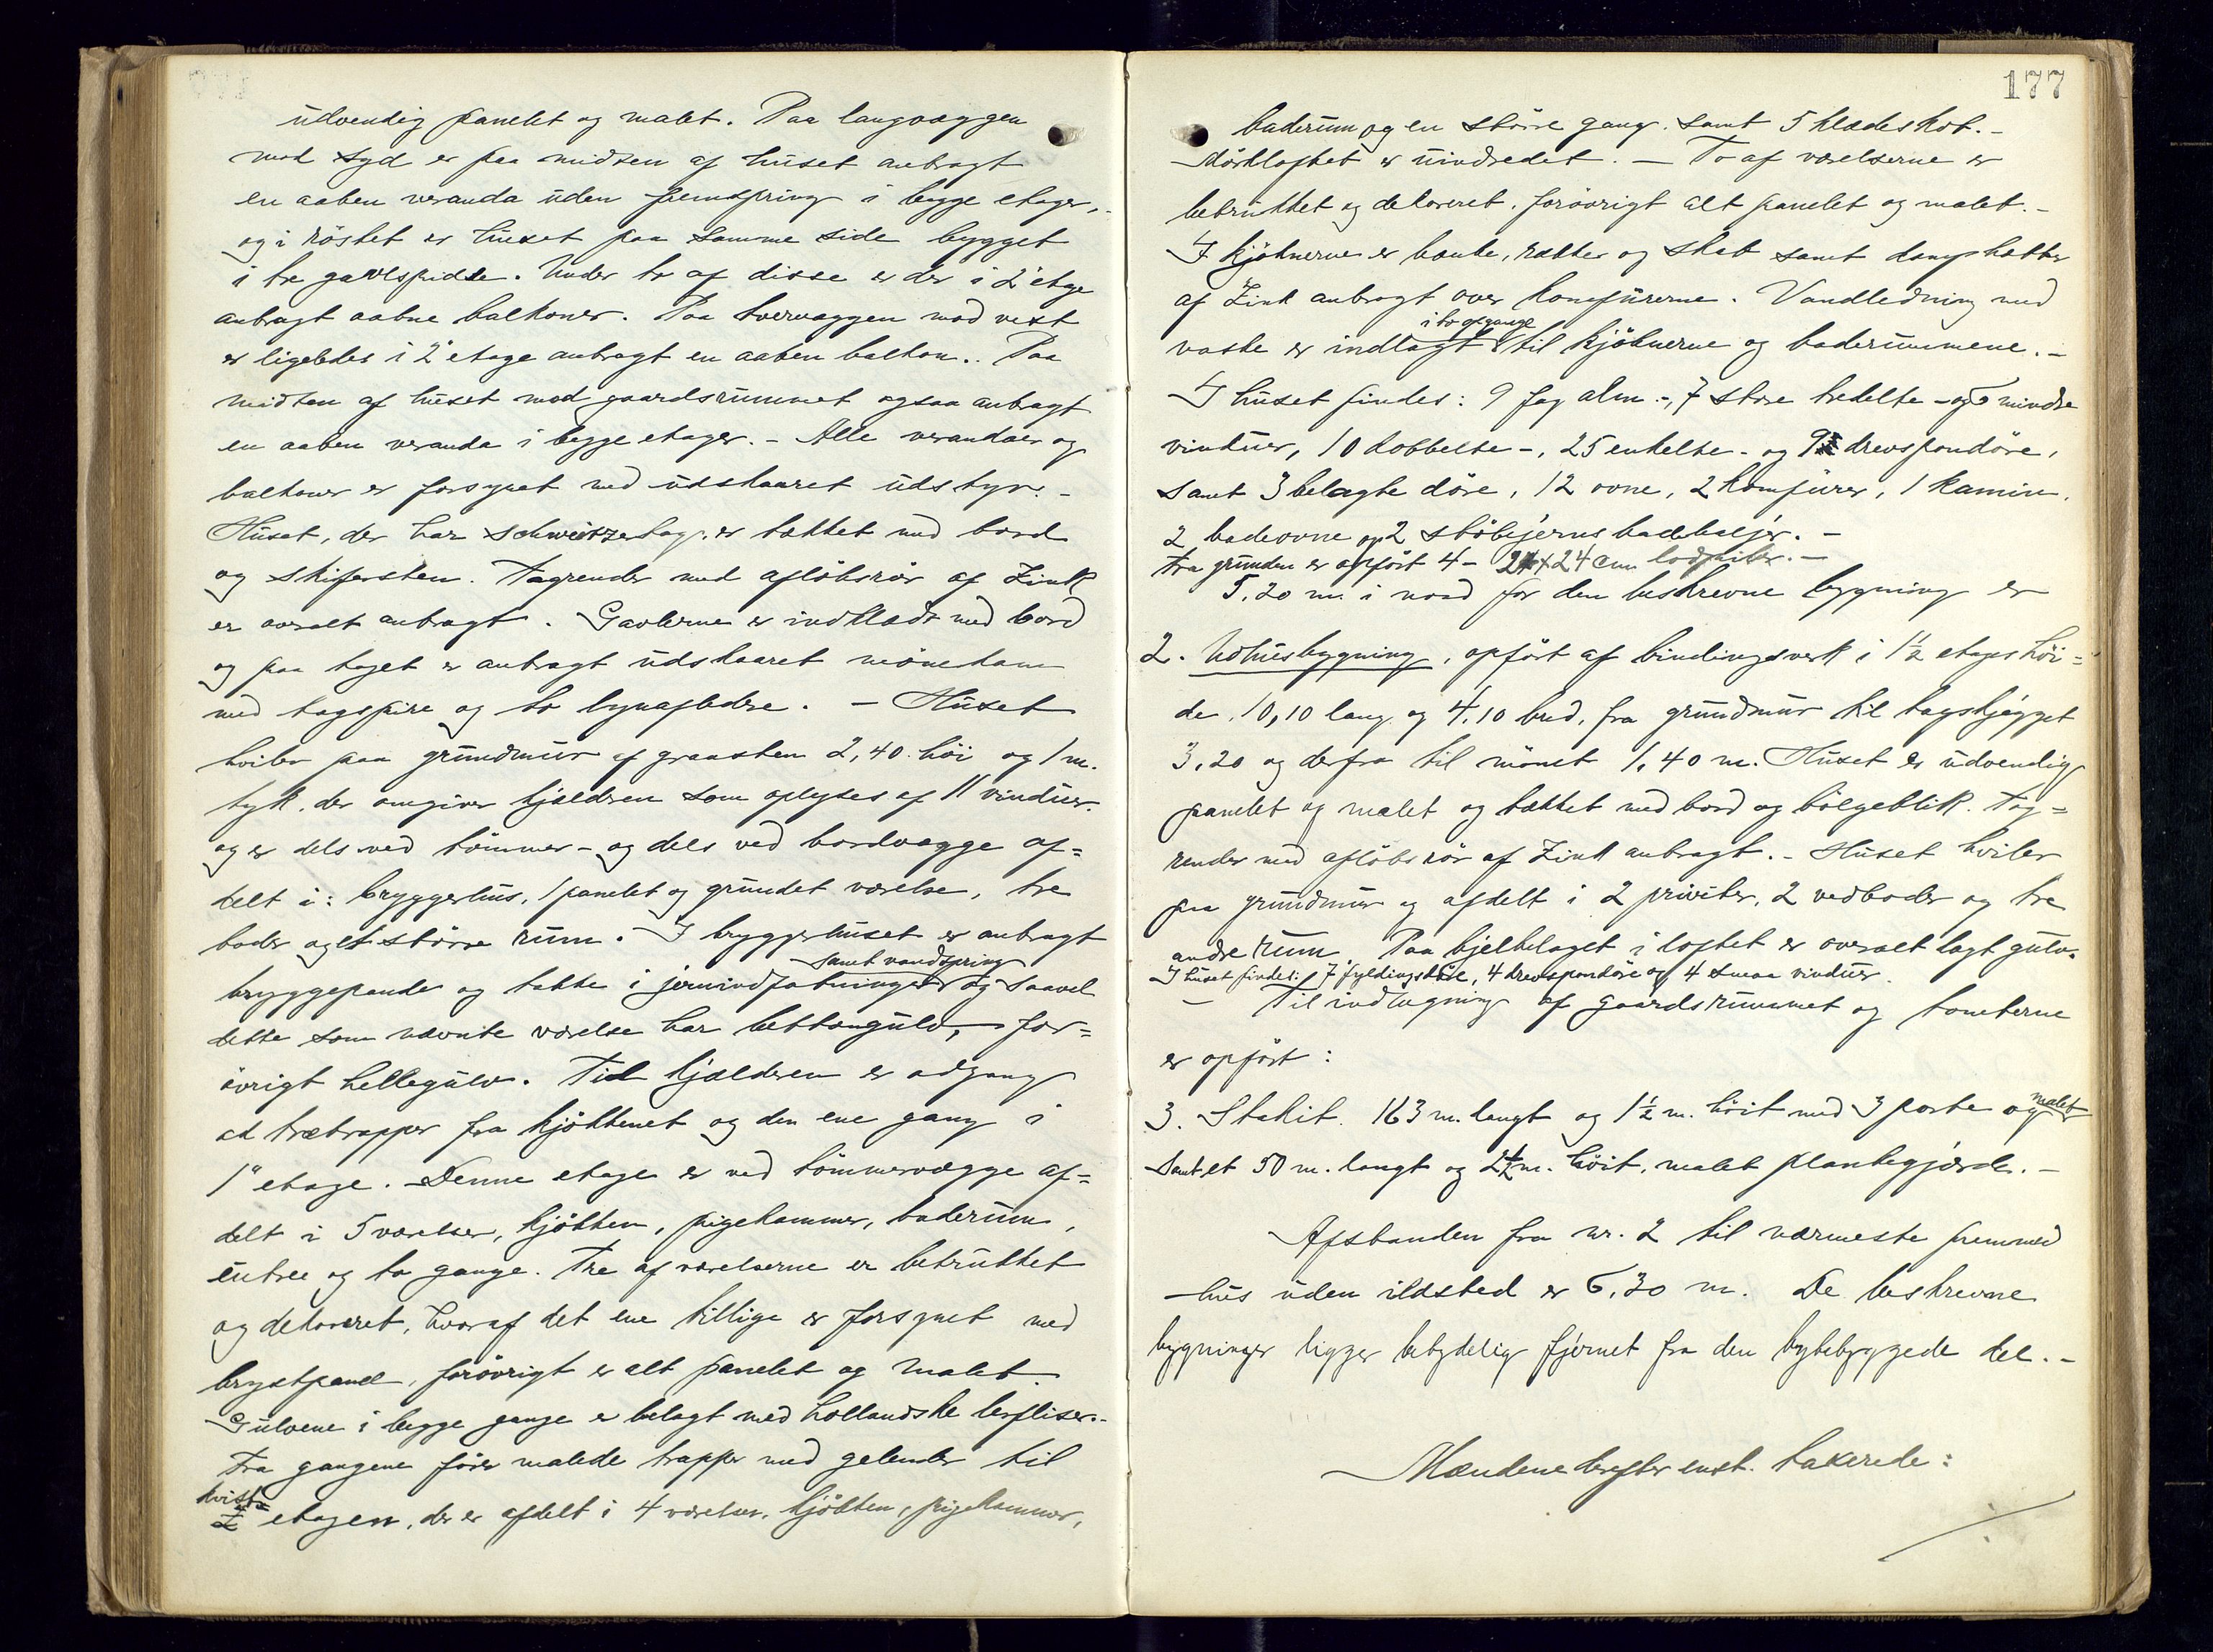 udvendig panelet og malet. Paa langvæggen
mod syd er paa midten af huset anbragt
en aaben veranda uden fremspring i begge etager,
og i röstet er huset paa samme side bygget
i tre gavlspidse. Under to af disse er der i 2' etage
anbragt aabne balkoner. Paa tvervæggen mod vest
er ligeledes i 2' etage anbragt en aaben balkon. Paa
midten af huset mod gaardsrummet ogsaa anbragt
en aaben veranda i begge etager. - Alle verandaer og
balkoner er forsynet med udskaaret udstyr. -
Huset, der har schweitzertag, er tækket med bord
og skifersten. Tagrender med aflöbsrör af Zink
er overalt anbragt. Gavlerne er indklædt med bord
og paa taget er anbragt udskaaret mönekam
med tagspire og to lynafledere. - Huset
hviler paa grundmur af graasten 2,40 höi og 1 m.
tyk, der omgiver kjælderen som oplyses af 11 vinduer
og er dels ved tömmer- og dels ved bordvægge af=
delt i: bryggerhus, 1 panelet og grundet værelse, tre
boder og et större rum. I bryggerhuset er anbragt
samt vandspring
bryggepande og takke i jernindfatninger og saavel
dette som nævnte værelse har bettongulv, for=
övrigt hellegulv. Til kjælderen er adgang
ad trætrapper fra kjökkenet og den ene gang i
1' etage. Denne etage er ved tömmervægge af=
delt i 5 værelser, kjökken, pigekammer, baderum,
entree og to gange. Tre af værelserne er betrukket
og dekoreret, hvoraf det ene tillige er forsynet med
brystpanel, forövrigt er alt panelet og malet.
Gulvene i begge gange er belagt med hollandske lerfliser. -
Fra gangene förer malede trapper med gelender til
kvist-
etagen, der er afdelt i 4 værelser, kjökken, pigekammer,
177
baderum og en större gang, samt 5 klædeskot. -
Mörkloftet er uindredet. - To af værelserne er
betrukket og dekoreret, forövrigt alt panelet og malet. -
I kjöknerne er bænke, rækker og skab samt damphætter
af Zink anbragt over komfurerne. Vandledning med
i to opgange
vaske er indlagt til kjöknerne og baderummene. -
I huset findes: 9 fag alm.-, 7 store tredelte- og 6 mindre
vinduer, 10 dobbelte-, 25 enkelte- og 9 drevspondöre,
samt 3 belagte döre, 12 ovne, 2 komfurer, 1 kamin,
2 badeovne og 2 stöbejerns badebaljer. -
Fra grunden er opfört 4 - 24 x 24 cm lodpiber. -
5.20 m. i nord for den beskrevne bygning er
2. Udhusbygning, opfört af bindingsverk i 1½ etages höi=
de, 10,10 lang og 4.10 bred, fra grundmur til tagskjægget
3,20 og derfra til mönet 1,40 m. Huset er udvendig
panelet og malet og tækket med bord og bölgeblik. Tag=
render med aflöbsrör af Zink anbragt. - Huset hviler
paa grundmur og afdelt i 2 priveter, 2 vedboder og tre
andre rum. Paa bjelkelaget i loftet er overalt lagt gulv.
I huset findes: 7 fyldingsdöre, 4 drevspondöre og 4 smaa vinduer.
- Til indhegning af gaardsrummet og tomterne
er opfört:
malet
3. Stakit. 163 m. langt og 1½ m. höit med 3 porte og
samt et 50 m. langt og 2½ m. höit, malet plankegjærde. -
Afstanden fra nr. 2 til nærmeste fremmed
hus uden ildsted er 6,30 m. De beskrevne
bygninger ligger betydelig fjernet fra den bybebyggede del. -
Mændene derefter enst. taxerede: